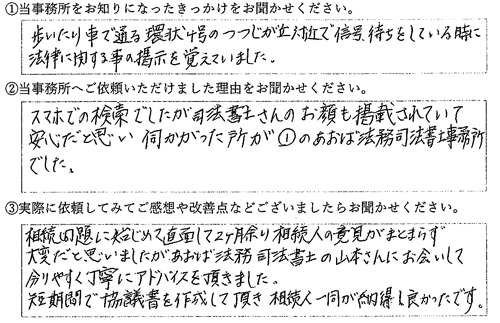 ①当事務所をお知りになったきっかけをお聞かせください。
歩いたり車で通る環状4号のつつじが丘付近で信号待ちをしている時に
法律に関する事の掲示を覚えていました。
②当事務所へご依頼いただけました理由をお聞かせください。
スマホでの検索でしたが司法書士さんのお顔も掲載されていて
安心だと思い伺がった所が①のあおば法務司法書士事務所
でした。
③実際に依頼してみてご感想や改善点などございましたらお聞かせください。
相続問題に始じめて直面して2ヶ月余り相続人の意見がまとまらず
大変だと思いましたがあおば法務司法書士の山本さんにお会いして
分りやすく丁寧にアドバイスを頂きました。
短期間で協議書を作成して頂き相続人一同が納得し良かったです。